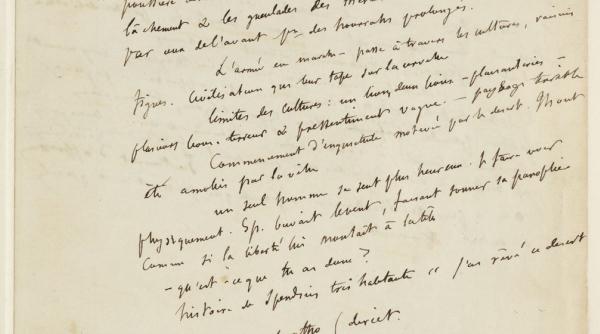 poussière
lâchement & les gueulades des
par eux de l'avant par des hourrahs prolongés.
L'armée en marche - passe à travers les cultures, raisins
figues. Civilisation qui leur tape sur la cervelle
limites des cultures : un lion, deux lions - plaisanteries -
plusieurs lions. terreur & pressentiment vague. - paysage terrible
Commencement d'inquiétude motivée par le désert. Ils ont
été amollis par la ville
un seul homme se sent plus heureux. le faire voir
physiquement. Sp. buvait le vent, faisant sonner sa panoplie
comme si la liberté lui montait à la tête
- qu'est-ce que tu as donc ?
histoire de Spendius très habitante « j'ai rêvé ce désert